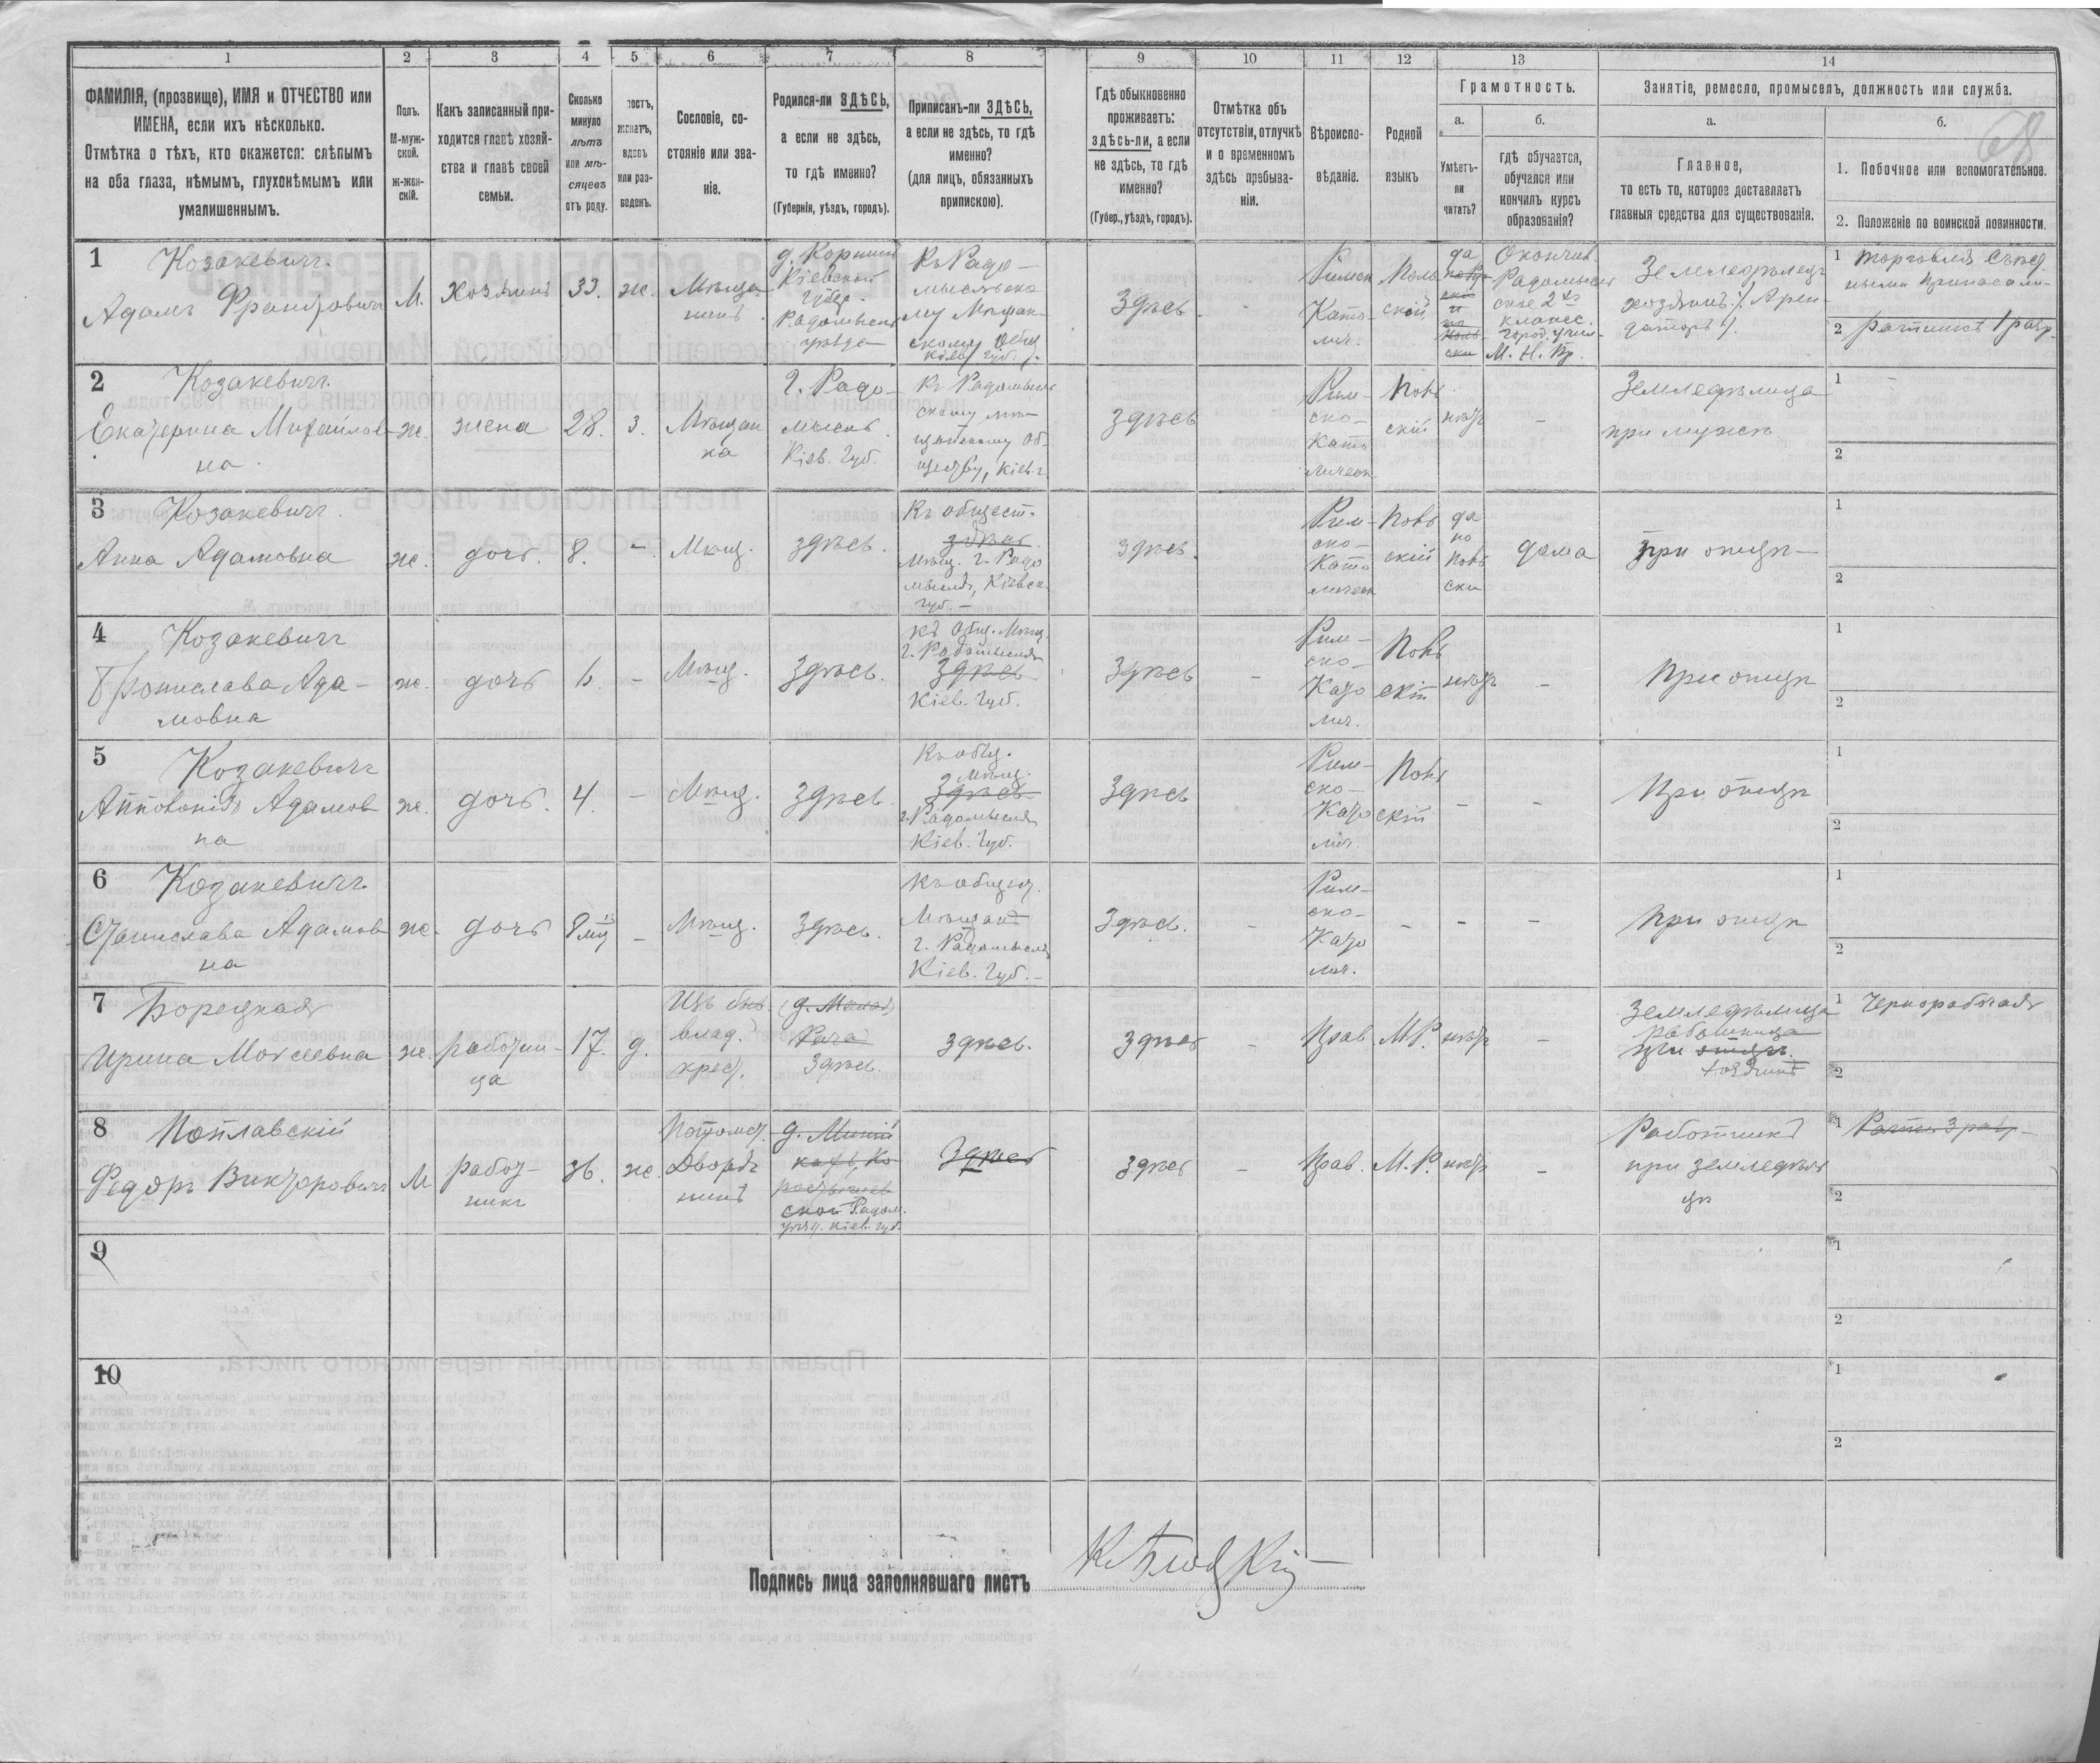 1 2 3 4 5 6 7 8 9 10 11 12 13 14
ФАМИЛІЯ, (прозвище), ИМЯ и ОТЧЕСТВО или
ИМЕНА, если ихъ нѣсколько.
Отмѣтка о тѣхъ, кто окажется: слѣпымъ
на оба глаза, нѣмымъ, глухонѣмымъ или
умалишеннымъ.
Полъ.
М-муж-
ской.
ж-жен-
скій.
Какъ записанный при-
ходится главѣ хозяй-
ства и главѣ своей
семьи.
Сколько
минуло
лѣтъ
или мѣ-
сяцевъ
отъ роду.
лостъ,
женатъ,
вдовъ
или раз-
веденъ.
Сословіе, со-
стояніе или зва-
ніе.
Родился-ли ЗДѢСЬ,
а если не здѣсь,
то гдѣ именно?
(Губернія, уѣздъ, городъ).
Приписанъ-ли ЗДѢСЬ,
а если не здѣсь, то гдѣ
именно?
(для лицъ, обязанныхъ
припискою).
Гдѣ обыкновенно
проживаетъ:
здѣсь-ли, а если
не здѣсь, то гдѣ
именно?
(Губер., уѣздъ, городъ).
Отмѣтка объ
отсутствіи, отлучкѣ
и о временномъ
здѣсь пребыва-
ніи.
Вѣроиспо-
вѣданіе.
Родной
языкъ
Грамотность.
а.
Умѣетъ-
ли
читать?
б.
гдѣ обучается,
обучался или
кончилъ курсъ
образованія?
Занятіе, ремесло, промыселъ, должность или служба.
а.
Главное,
то есть то, которое доставляетъ
главныя средства для существованія.
б.
68
1. Побочное или вспомогательное.
2. Положеніе по воинской повинности.
1 Козакевичъ
Адамъ Францовичъ
М.
Хозяинъ
33.
ж.
Мѣща-
нинъ
д.
Кіевской
губер.
Радомысль
уѣзда
Къ Радо-
мысльско
му Мѣщан-
скому Общ
Кіев. губ.
Здѣсь
-
Римск
Като-
лич.
Поль
скій
да
Окончив.
Радомысль
ское 2хъ
класс.
город. учил-
М. Н. Пр.
Земледѣлецъ
хозяинъ. Арен-
даторъ
1 Торговля съѣст
ными припасами-
2 ратникъ 1 разр.
2 Козакевичъ
Екатерина Михайлов
на
ж.
жена
28.
з.
Мѣщан
ка
г. Радо-
мысль
Кіев. Губ.
Къ Радомысль
скому мѣ-
щанскому об
ществу, Кіев. г.
здѣсь
Рим-
ско-
Като
лическ
Поль
скій
нѣтъ
-
Земледѣлица
при мужѣ
1
2
3 Козакевичъ
Анна Адамовна
ж.
дочь.
8.
-
Мѣщ.
здѣсь.
Къ общест.
здѣсь
Мѣщ. г. Радо
мысль, Кіевск
губ.-
здѣсь.
Рим-
ско-
Като
лическ
Поль
скій
да
по
поль
ски
дома
при отцѣ-
1
2
4 Козакевичъ
Бронислава Ада-
мовна
ж.
дочь
6.
-
Мѣщ.
Здѣсь.
къ Общ. Мѣщ.
г. Радомысля
Здѣсь
Кіев. Губ.
Здѣсь
-
Рим-
ско-
Като
лич.
Поль
скій
нѣтъ
-
При отцѣ
1
2
5 Козакевичъ
Апполонія Адамов
на
ж.
дочь.
4.
-
Мѣщ.
Здѣсь
Къ общ.
Мѣщ.
Здѣсь
г. Радомысля
Кіев. Губ.
Здѣсь
Рим-
ско-
Като
лич.
Поль
скій
-
-
При отцѣ
1
2
6 Козакевичъ
Станислава Адамов
на
ж.
дочь
8 мц
-
Мѣщ.
Здѣсь.
Къ общест.
Мѣщан
г. Радомысля
Кіев. Губ.-
Здѣсь.
-
Рим-
ско-
Като
лич.
-
-
-
При отцѣ
1
2
7 Борецкая
Ирина Моисеевна
ж.
работни-
ца
17.
д.
Изъ быв.
влад.
крест.
Здѣсь.
здѣсь.
здѣсь
-
Прав
М.Р.
нѣтъ
-
Земледѣлица
работница
при отцѣ
хозяинѣ
1 Чернорабочая
2
8 Поплавскій
Федоръ Викторовичъ
М
работ-
никъ
36.
ж.
Потомст.
Дворя
нинъ
ской Радом.
уѣзд. Кіев. губ.
Здѣсь
здѣсь
-
Прав.
М.Р.
нѣтъ
-
Работникъ
при земледѣль
цѣ
1 Ратн. 3 разр-
2
9
1
2
10
1
2
Подпись лица заполнявшаго листъ